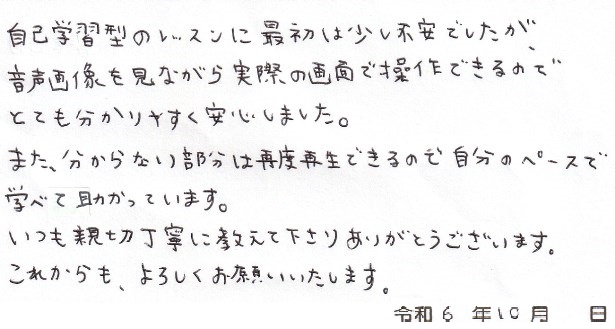 自己学習型のレッスンに最初は少し不安でしたが、
音声画像を見ながら実際の画面で操作できるので
とても分かりやすく安心しました。
また、分からない部分は再度再生できるので自分のペースで
学べて助かっています。
いつも親切丁寧に教えて下さりありがとうございます。
これからも、よろしくお願いいたします。
令和 6 年 10 月 日